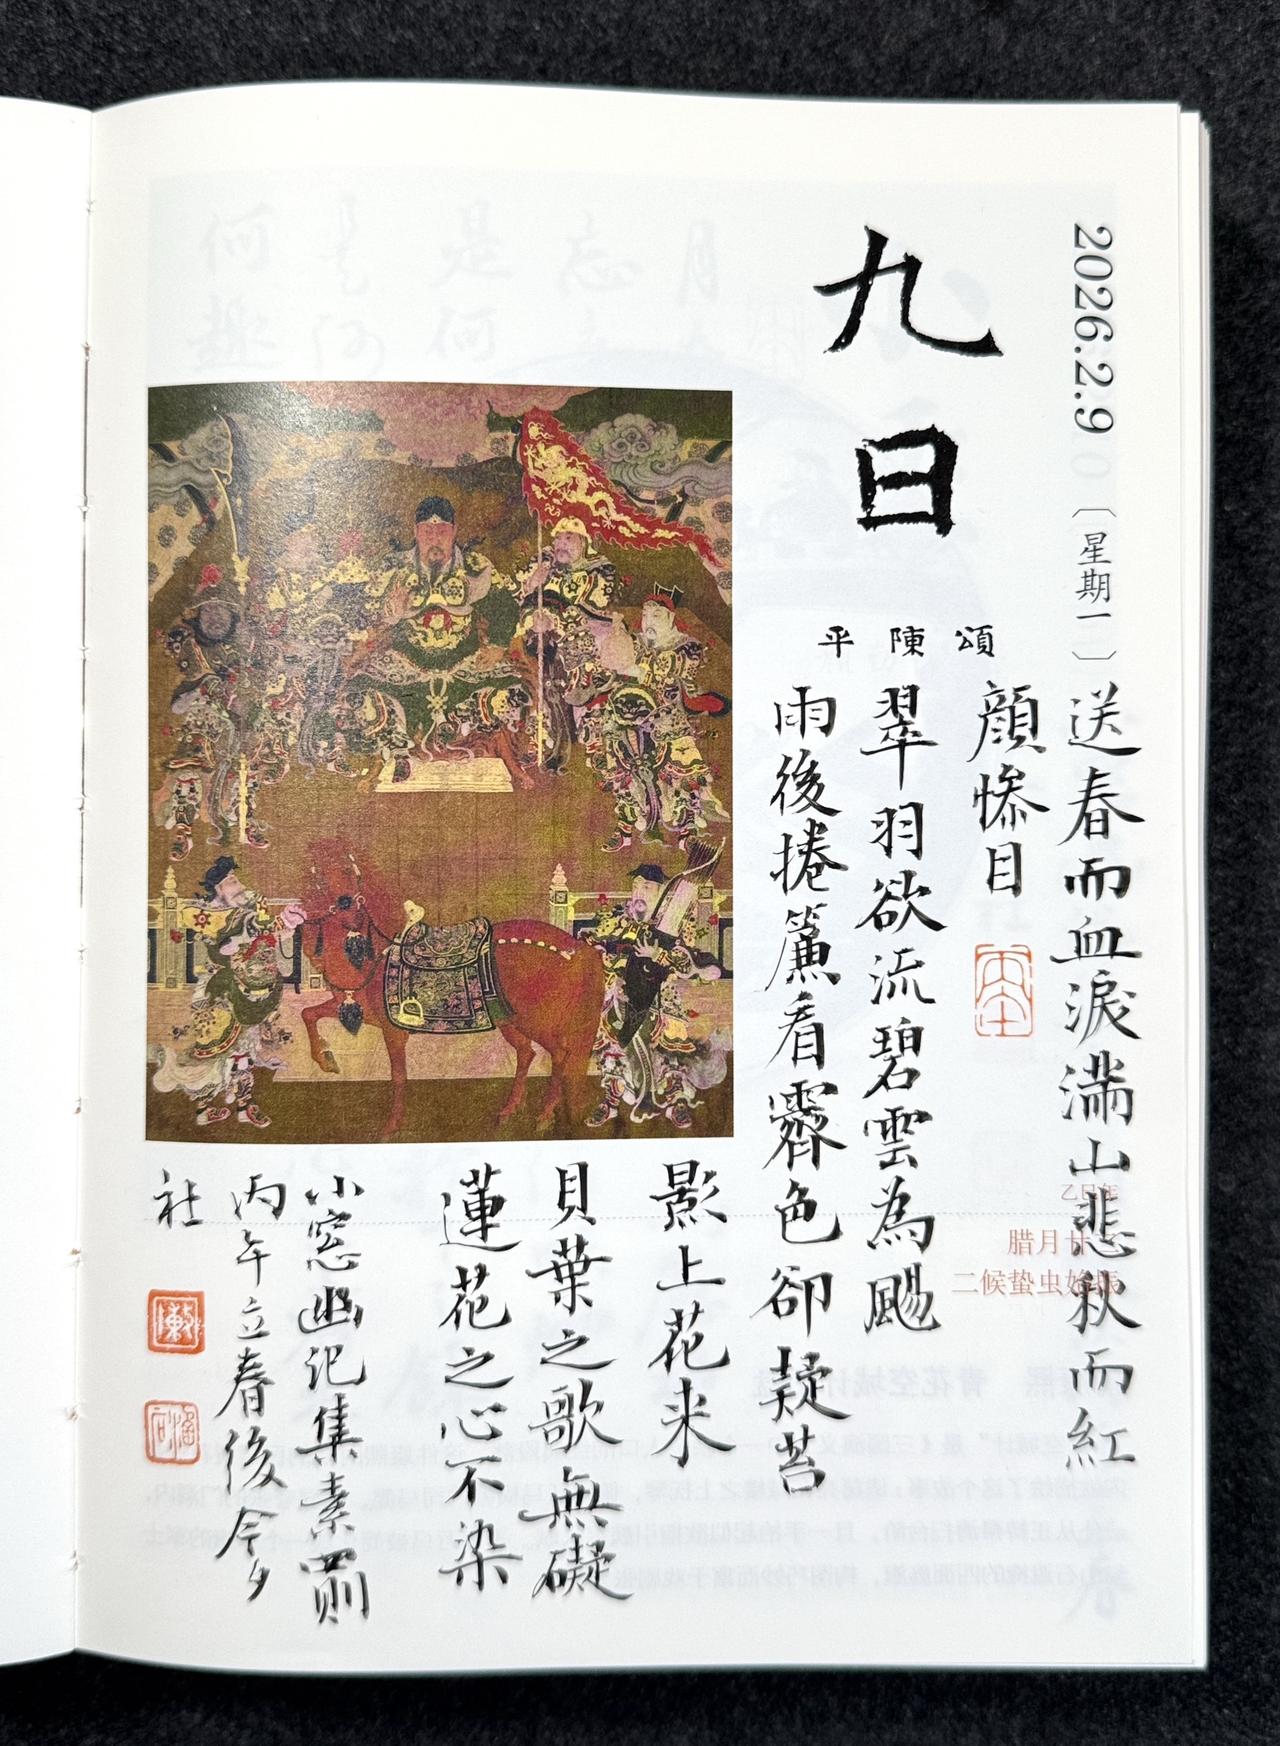 2026.2.9〔星期一〕
送春而血淚滿山悲秋而紅
顏慘目
九日
平陳頌
翠羽欲流碧雲為颺
雨後捲簾看霽色卻疑苔
影上花来
貝葉之歌無礙
蓮花之心不染
小窓幽记集素四则
丙午立春後今夕
社
乙巳年
腊月廿
二候蛰虫始振